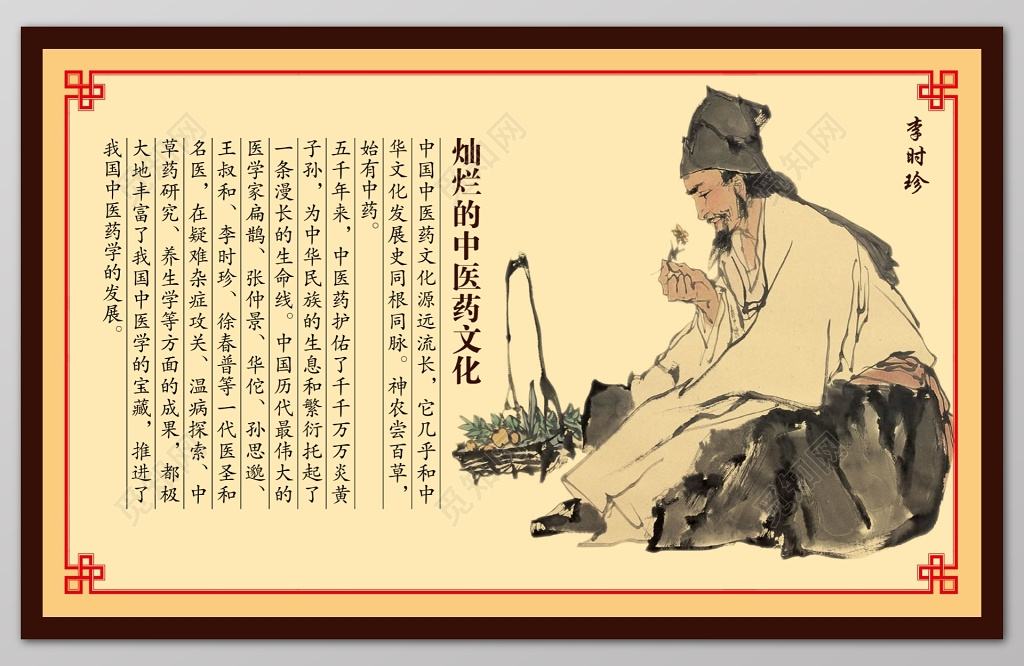 李时珍
灿烂的中医药文化
中国中医药文化源远流长，它几乎和中
华文化发展史同根同脉。神农尝百草，
始有中药。
五千年来，中医药护佑了千千万万炎黄
子孙，为中华民族的生息和繁衍托起了
一条漫长的生命线。中国历代最伟大的
医学家扁鹊、张仲景、华佗、孙思邈、
王叔和、李时珍、徐春普等一代医圣和
名医，在疑难杂症攻关、温病探索、中
草药研究、养生学等方面的成果，都极
大地丰富了我国中医学的宝藏，推进了
我国中医药学的发展。
觅知网
觅知网
觅知网
觅知网
觅知网
觅知网